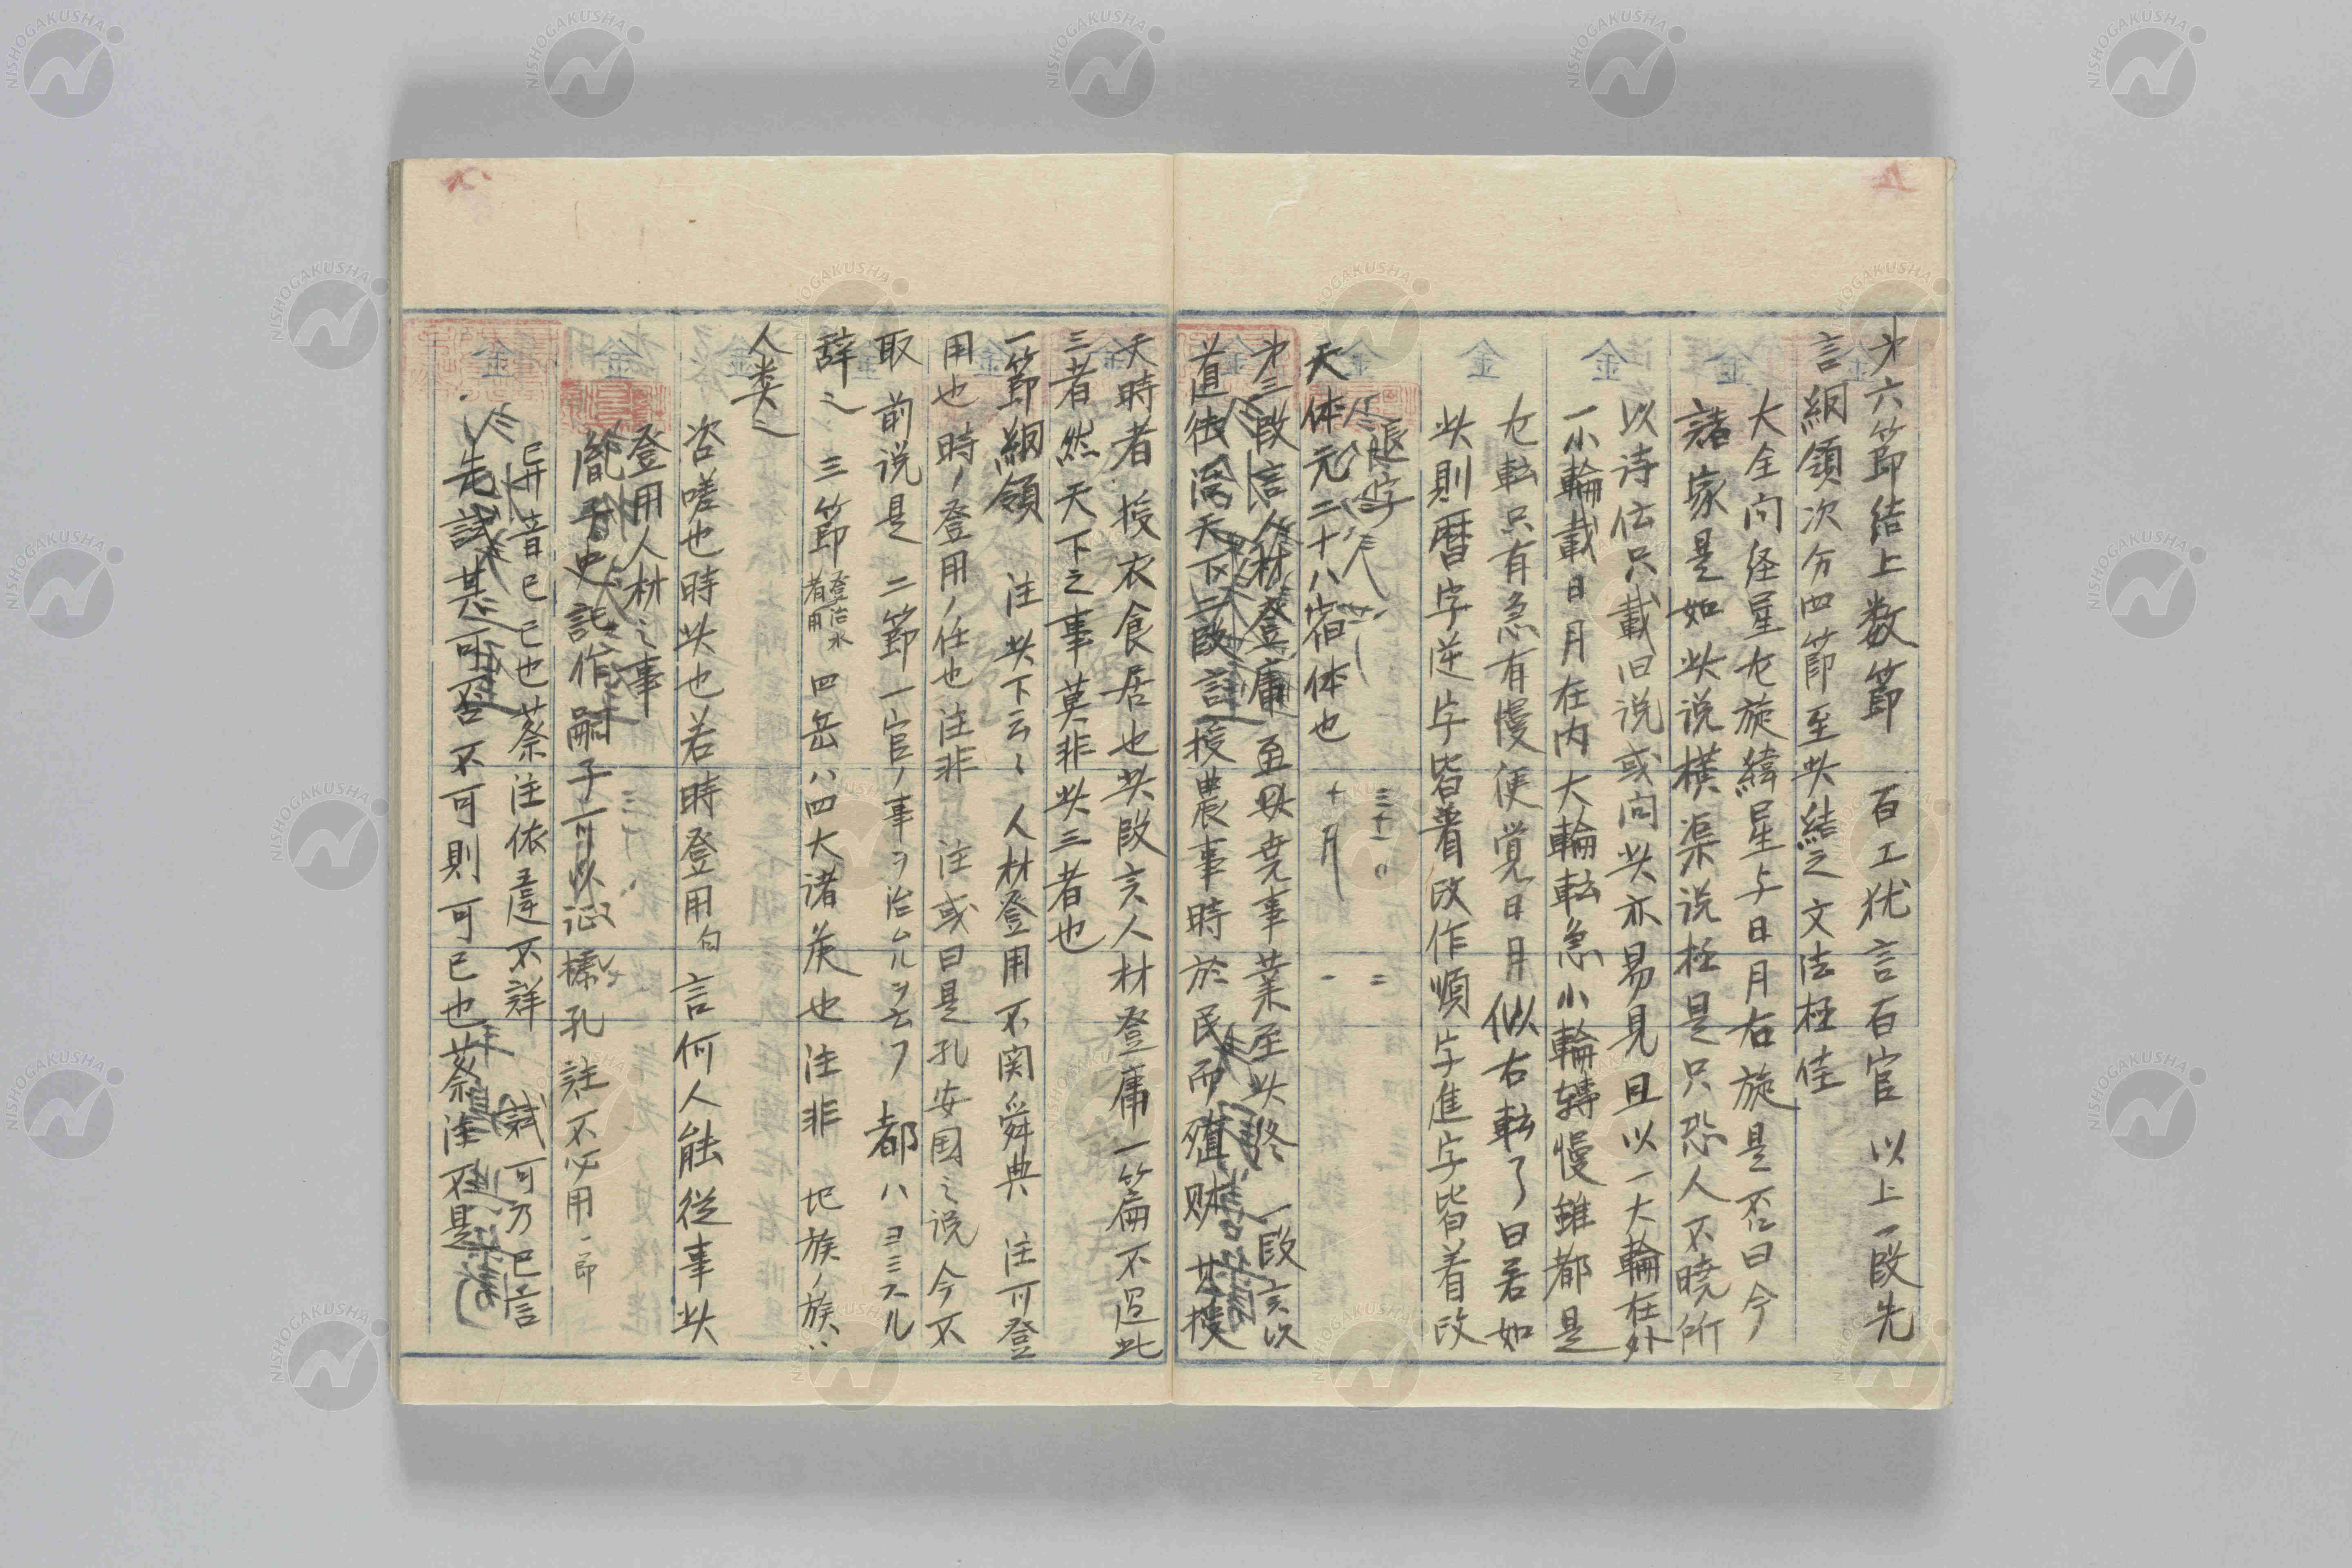 才六節結上数節　百工犹言百官　以上一段先
言綱領次分四節至此結之文法極佳
大全问経星左旋緯星与日月右旋是否曰今
諸家是如此说横渠说極是只恐人不曉所
以诗伝只載旧说或问此亦易見且以一大輪在外
一小輪載日月在内大輪転急小輪轉慢雖都是
左転只有急有慢便覚日月似右転了曰若如
此則暦字逆字皆着改作順字進字皆着改
退字
三十一〇　二
天体元二十八宿体也　十月　一
才三段言人材登庸至此堯事業至此終　一段言次
道徳治天下二段言授農事時於民而殖財 其授
天時者授衣食居也此段言人材登庸一篇不過此
三者然天下之事莫非此三者也
一節綱領　注此下云〻人材登用不関舜典　注可登
用也時ノ登用ノ任也注非　注或曰是孔安国之说今不
取 前说是 二節一官ノ事ヲ治ムルヲ云フ 都ハヨミスル
辞之　三節登治水者用四岳ハ四大諸侯也注非　圮族ノ族ハ
人类之
咨嗟也時此也若時登用句言何人能從事此
登用人材之事
胤子史記作嗣子
孔註不必用一節
异音已已也蔡注依違不詳　試可乃已言
先試其可否不可則可已也蔡注不是